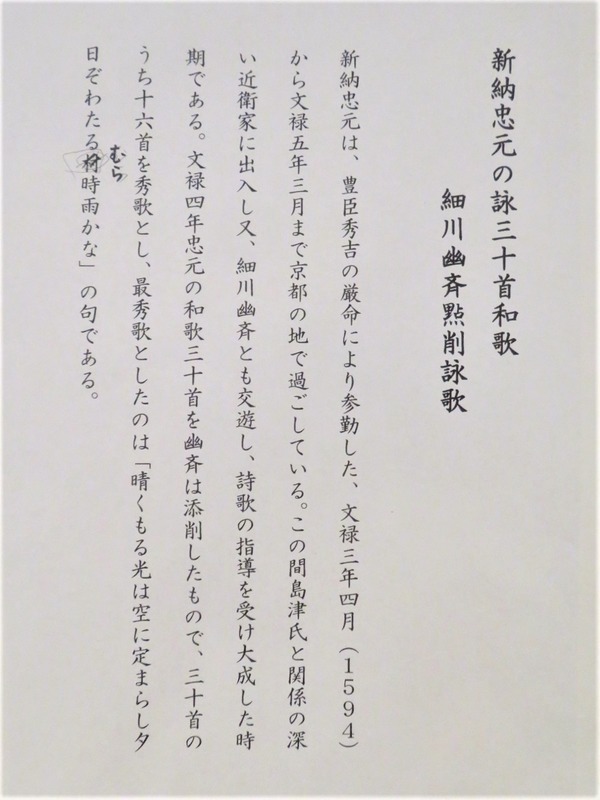 新納忠元の詠三十首和歌
細川幽斉點削詠歌
新納忠元は、豊臣秀吉の厳命により参勤した、文禄三年四月（１５９４）
から文禄五年三月まで京都の地で過ごしている。この間島津氏と関係の深
い近衛家に出入し又、細川幽斉とも交遊し、詩歌の指導を受け大成した時
期である。文禄四年忠元の和歌三十首を幽斉は添削したもので、三十首の
うち十六首を秀歌とし、最秀歌としたのは「晴くもる光は空に定まらし夕
むら
日ぞわたる村時雨かな」の句である。